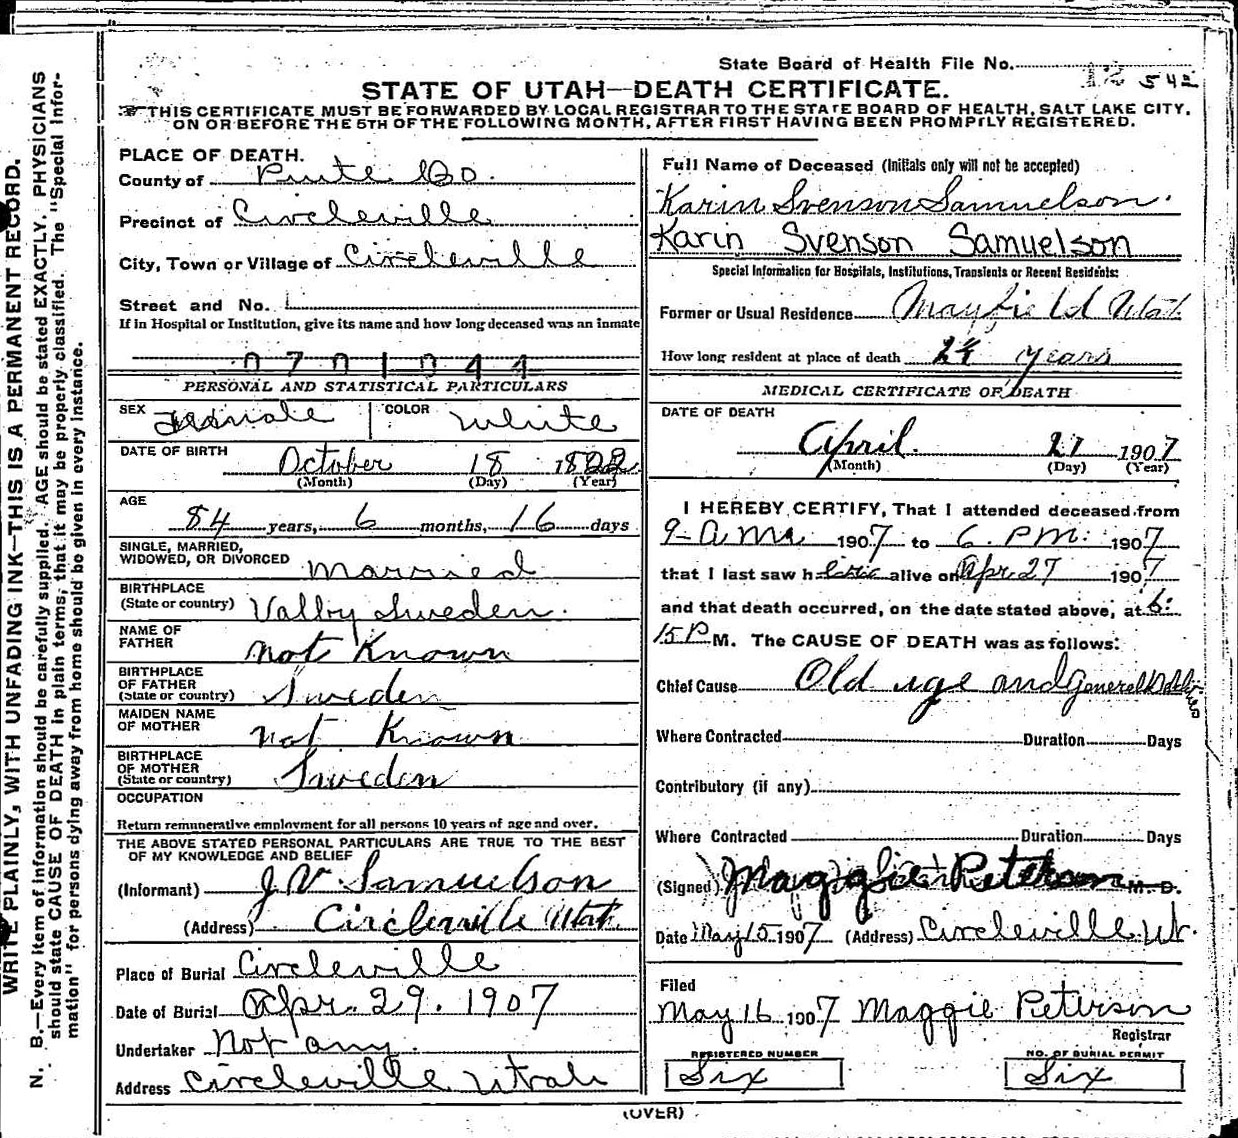 State Board of Health File No. 12 542
STATE OF UTAH—DEATH CERTIFICATE.
THIS CERTIFICATE MUST BE FORWARDED BY LOCAL REGISTRAR TO THE STATE BOARD OF HEALTH, SALT LAKE CITY,
ON OR BEFORE THE 5TH OF THE FOLLOWING MONTH, AFTER FIRST HAVING BEEN PROMPTLY REGISTERED.
WRITE PLAINLY, WITH UNFADING INK—THIS IS A PERMANENT RECORD.
N. B.—Every item of information should be carefully supplied. AGE should be stated EXACTLY. PHYSICIANS
should state CAUSE OF DEATH in plain terms, that it may be properly classified. The "Special Infor-
mation" for persons dying away from home should be given in every instance.
PLACE OF DEATH.
County of Piute Co.
Precinct of Circleville
City, Town or Village of Circleville
Street and No.
If in Hospital or Institution, give its name and how long deceased was an inmate
0701044
PERSONAL AND STATISTICAL PARTICULARS
SEX Female COLOR White
DATE OF BIRTH October 18 1822
(Month) (Day) (Year)
AGE
84 years, 6 months, 16 days
SINGLE, MARRIED,
WIDOWED, OR DIVORCED Married
BIRTHPLACE
(State or country) Valby Sweden.
NAME OF
FATHER Not Known
BIRTHPLACE
OF FATHER
(State or country) Sweden
MAIDEN NAME
OF MOTHER Not Known
BIRTHPLACE
OF MOTHER
(State or country) Sweden
OCCUPATION
Return remunerative employment for all persons 10 years of age and over.
THE ABOVE STATED PERSONAL PARTICULARS ARE TRUE TO THE BEST
OF MY KNOWLEDGE AND BELIEF
(Informant) J V Samuelson
(Address) Circleville Utah.
Place of Burial Circleville
Date of Burial Apr. 29. 1907
Undertaker Not any.
Address Circleville Utah
Full Name of Deceased (Initials only will not be accepted)
Karin Svenson Samuelson.
Karin Svenson Samuelson
Special Information for Hospitals, Institutions, Transients or Recent Residents:
Former or Usual Residence Mayfield Utah
How long resident at place of death years
MEDICAL CERTIFICATE OF DEATH
DATE OF DEATH
April. 27 1907
(Month) (Day) (Year)
I HEREBY CERTIFY, That I attended deceased from
9 A. M. 1907 to 6. P M. 1907
that I last saw h alive on Apr. 27 1907
and that death occurred, on the date stated above, at 6:
15 P M. The CAUSE OF DEATH was as follows:
Chief Cause Old age and General
Where Contracted Duration Days
Contributory (if any)
Where Contracted Duration Days
(Signed) Maggie Peterson M. D.
Date May 15 1907 (Address) Circleville, Ut.
Filed
May 16 1907 Maggie Peterson
Registrar
REGISTERED NUMBER NO. OF BURIAL PERMIT
Six Six
(OVER)